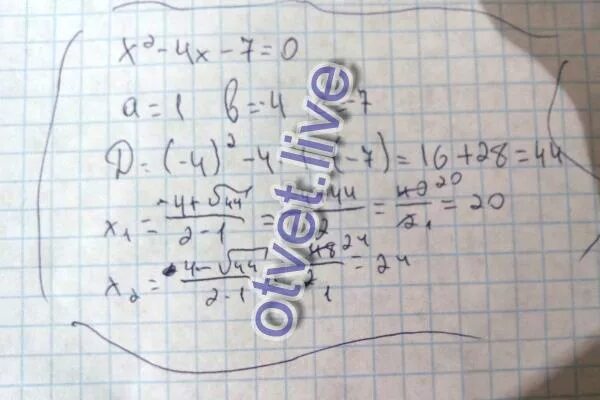 x² - 4x - 7 = 0
a = 1 b = -4 = -7
D = (-4)² - 4 (-7) = 16 + 28 = 44
x₁ = -4+√44 / 2·1 = 44 / 2 = 40 20 / 2 1 = 20
x₂ = 4-√44 / 2·1 48 24 / 2 1 = 24
otvet.live